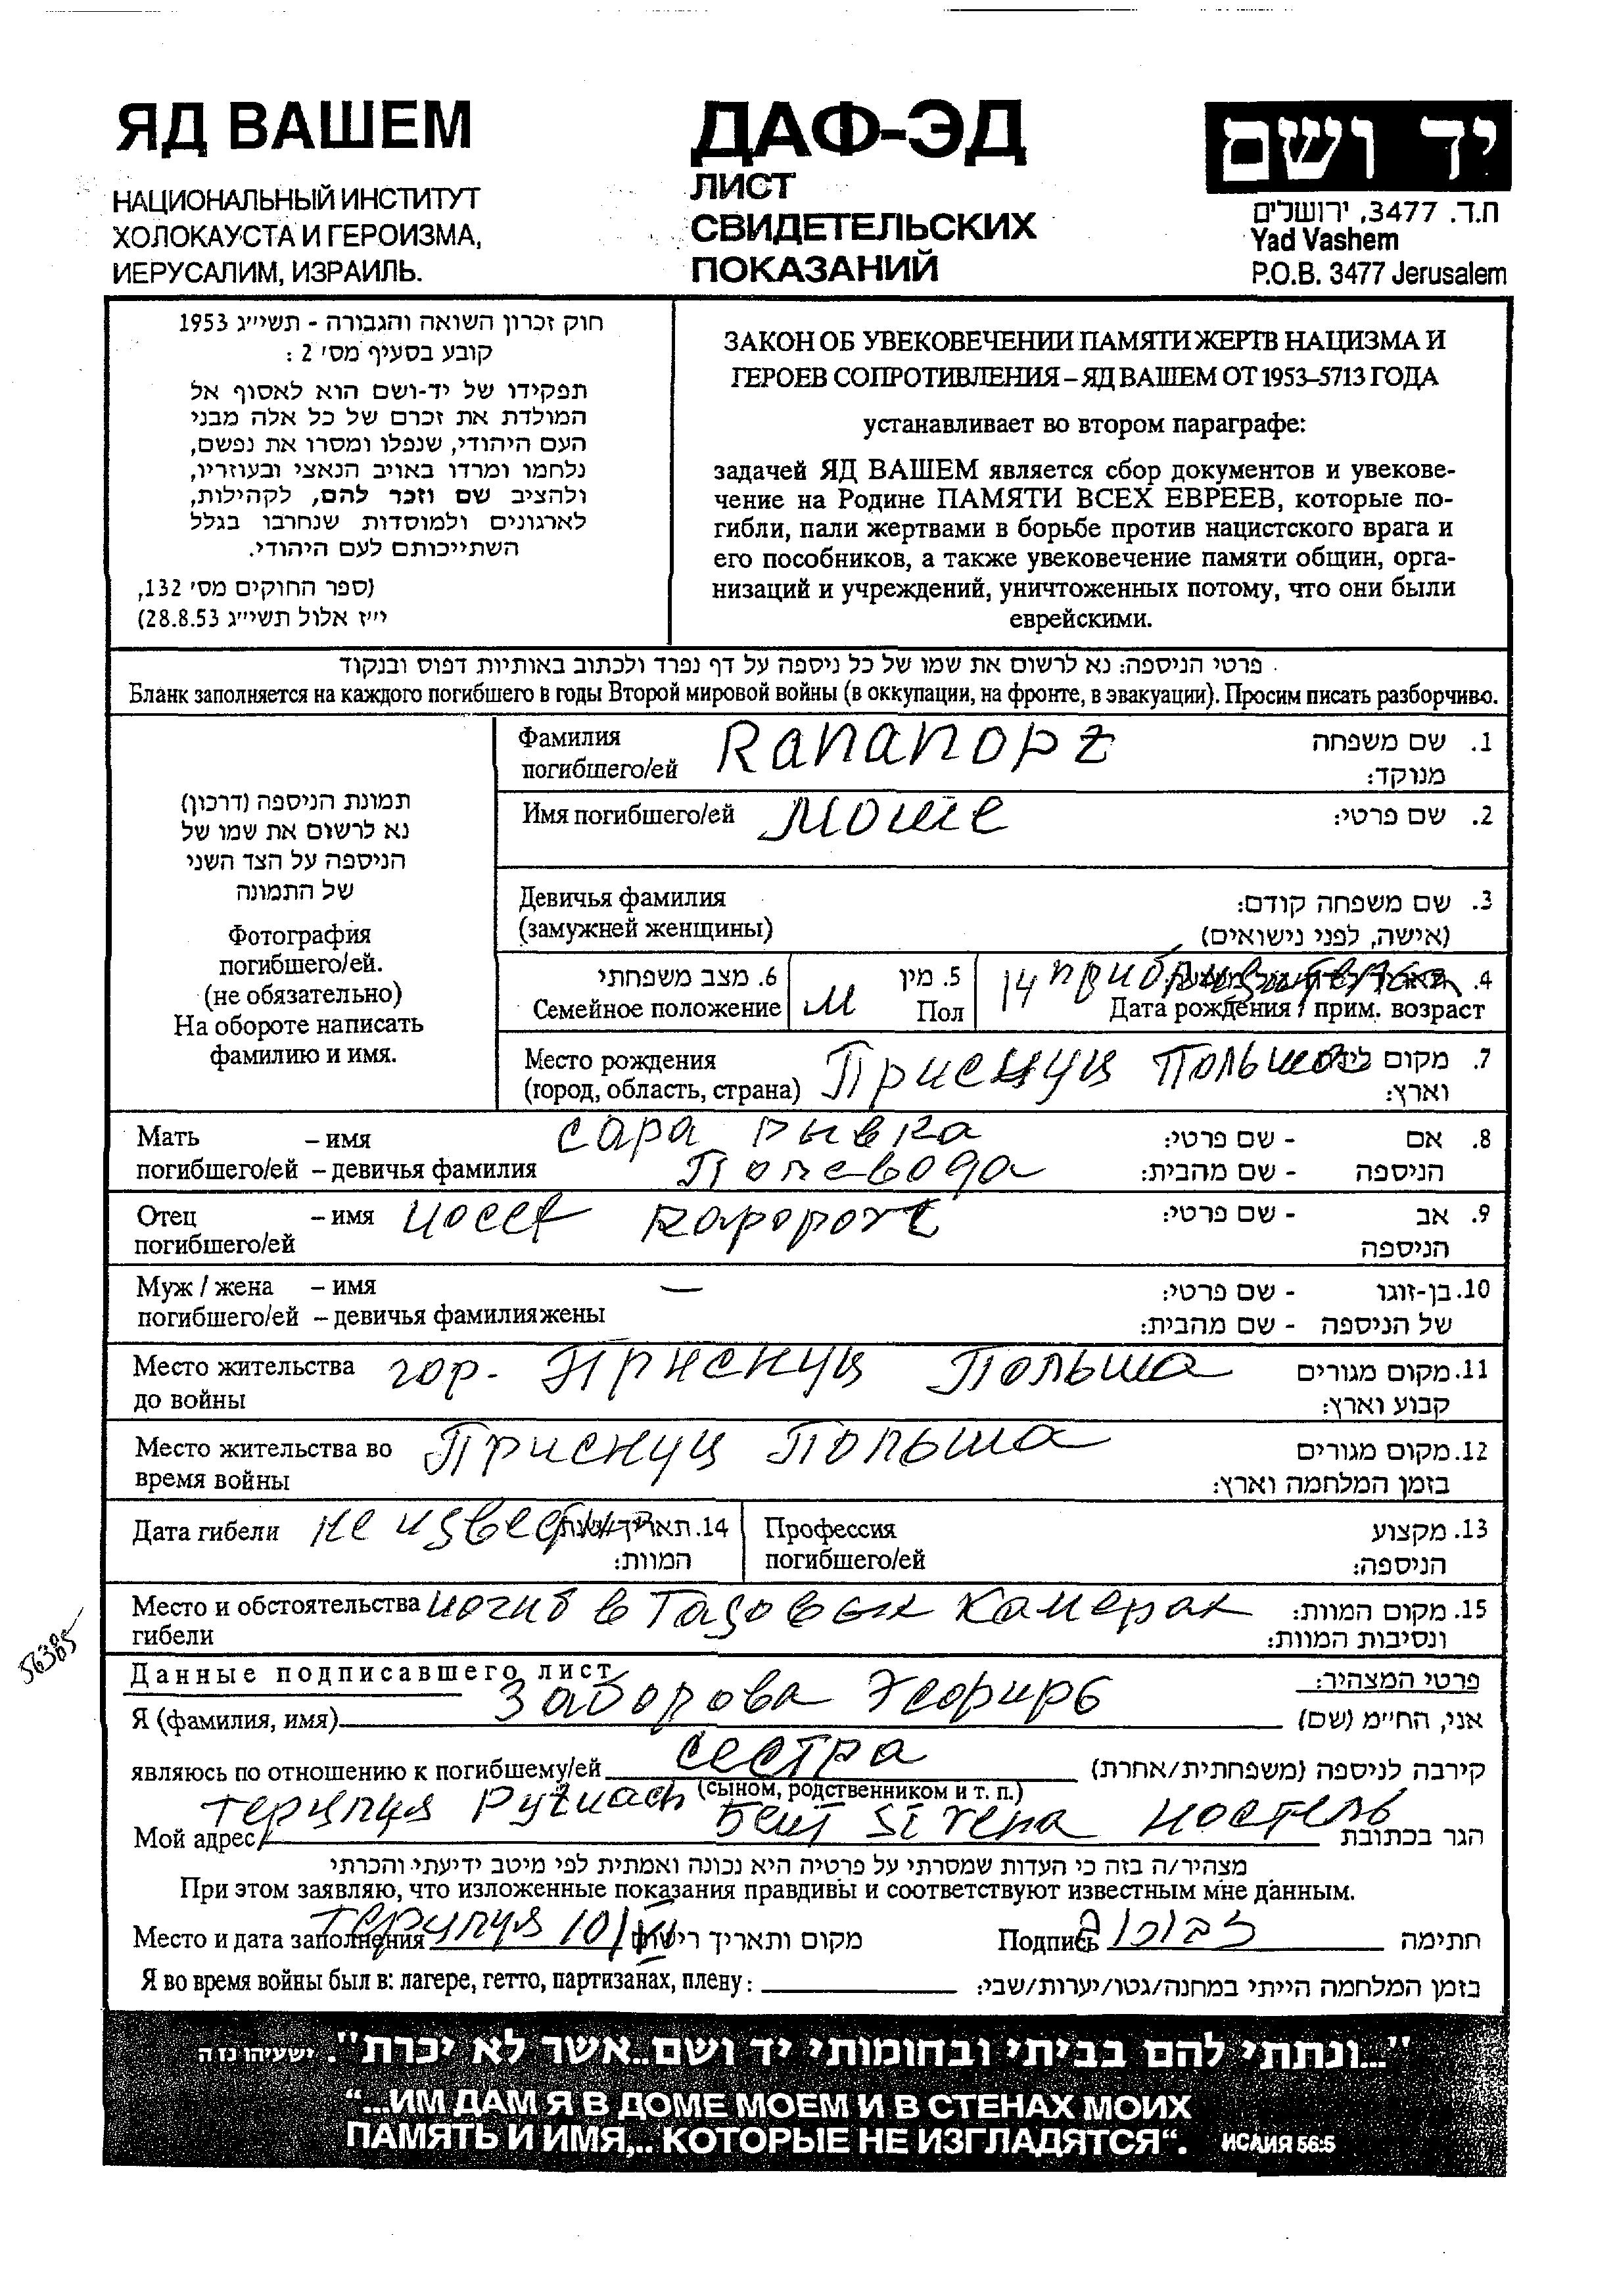 ЯД ВАШЕМ
НАЦИОНАЛЬНЫЙ ИНСТИТУТ
ХОЛОКАУСТА И ГЕРОИЗМА,
ИЕРУСАЛИМ, ИЗРАИЛЬ.
ДАФ-ЭД
ЛИСТ
СВИДЕТЕЛЬСКИХ
ПОКАЗАНИЙ
יד ושם
ת.ד. 3477, ירושלים
Yad Vashem
P.O.B. 3477 Jerusalem
חוק זכרון השואה והגבורה - תשי״ג 1953
קובע בסעיף מס׳ 2 :
תפקידו של יד-ושם הוא לאסוף אל
המולדת את זכרם של כל אלה מבני
העם היהודי, שנפלו ומסרו את נפשם,
נלחמו ומרדו באויב הנאצי ובעוזריו,
ולהציב שם וזכר להם, לקהילות,
לארגונים ולמוסדות שנחרבו בגלל
השתייכותם לעם היהודי.
(ספר החוקים מס׳ 132,
י״ז אלול תשי״ג 28.8.53)
ЗАКОН ОБ УВЕКОВЕЧЕНИИ ПАМЯТИ ЖЕРТВ НАЦИЗМА И
ГЕРОЕВ СОПРОТИВЛЕНИЯ – ЯД ВАШЕМ ОТ 1953–5713 ГОДА
устанавливает во втором параграфе:
задачей ЯД ВАШЕМ является сбор документов и увекове-
чение на Родине ПАМЯТИ ВСЕХ ЕВРЕЕВ, которые по-
гибли, пали жертвами в борьбе против нацистского врага и
его пособников, а также увековечение памяти общин, орга-
низаций и учреждений, уничтоженных потому, что они были
еврейскими.
פרטי הניספה: נא לרשום את שמו של כל ניספה על דף נפרד ולכתוב באותיות דפוס ובנקוד
Бланк заполняется на каждого погибшего в годы Второй мировой войны (в оккупации, на фронте, в эвакуации). Просим писать разборчиво.
תמונת הניספה (דרכון)
נא לרשום את שמו של
הניספה על הצד השני
של התמונה
Фотография
погибшего/ей.
(не обязательно)
На обороте написать
фамилию и имя.
Фамилия 1. שם משפחה
погибшего/ей מנוקד:
Имя погибшего/ей Моше 2. שם פרטי:
Девичья фамилия 3. שם משפחה קודם:
(замужней женщины) (אישה, לפני נישואים)
6. מצב משפחתי 5. מין 14 приблизительно 4.
Семейное положение М Пол Дата рождения / прим. возраст
Место рождения Приснуц Польша 7. מקום
(город, область, страна) וארץ:
Мать – имя сара рывка 8. אם - שם פרטי:
погибшего/ей – девичья фамилия הניספה - שם מהבית:
Отец – имя 9. אב - שם פרטי:
погибшего/ей הניספה
Муж / жена – имя — 10. בן-זוגו - שם פרטי:
погибшего/ей – девичья фамилия жены של הניספה - שם מהבית:
Место жительства гор. Приснуц Польша 11. מקום מגורים
до войны קבוע וארץ:
Место жительства во Приснуц Польша 12. מקום מגורים
время войны בזמן המלחמה וארץ:
Дата гибели 14. Профессия 13. מקצוע
המוות: погибшего/ей הניספה:
Место и обстоятельства погиб в Газовых камерах 15. מקום המוות:
гибели ונסיבות המוות:
56385
Данные подписавшего лист פרטי המצהיר:
Я (фамилия, имя) Заборова אני, הח״מ (שם)
являюсь по отношению к погибшему/ей сестра קירבה לניספה (משפחתית/אחרת)
(сыном, родственником и т. п.)
Мой адрес הגר בכתובת
מצהיר/ה בזה כי העדות שמסרתי על פרטיה היא נכונה ואמתית לפי מיטב ידיעתי והכרתי
При этом заявляю, что изложенные показания правдивы и соответствуют известным мне данным.
Место и дата заполнения מקום ותאריך Подпись חתימה
Я во время войны был в: лагере, гетто, партизанах, плену: בזמן המלחמה הייתי במחנה/גטו/יערות/שבי:
"...ונתתי להם בביתי ובחומותי יד ושם..אשר לא יכרת". ישעיהו נו ה
“...ИМ ДАМ Я В ДОМЕ МОЕМ И В СТЕНАХ МОИХ
ПАМЯТЬ И ИМЯ,.. КОТОРЫЕ НЕ ИЗГЛАДЯТСЯ“. ИСАИЯ 56:5